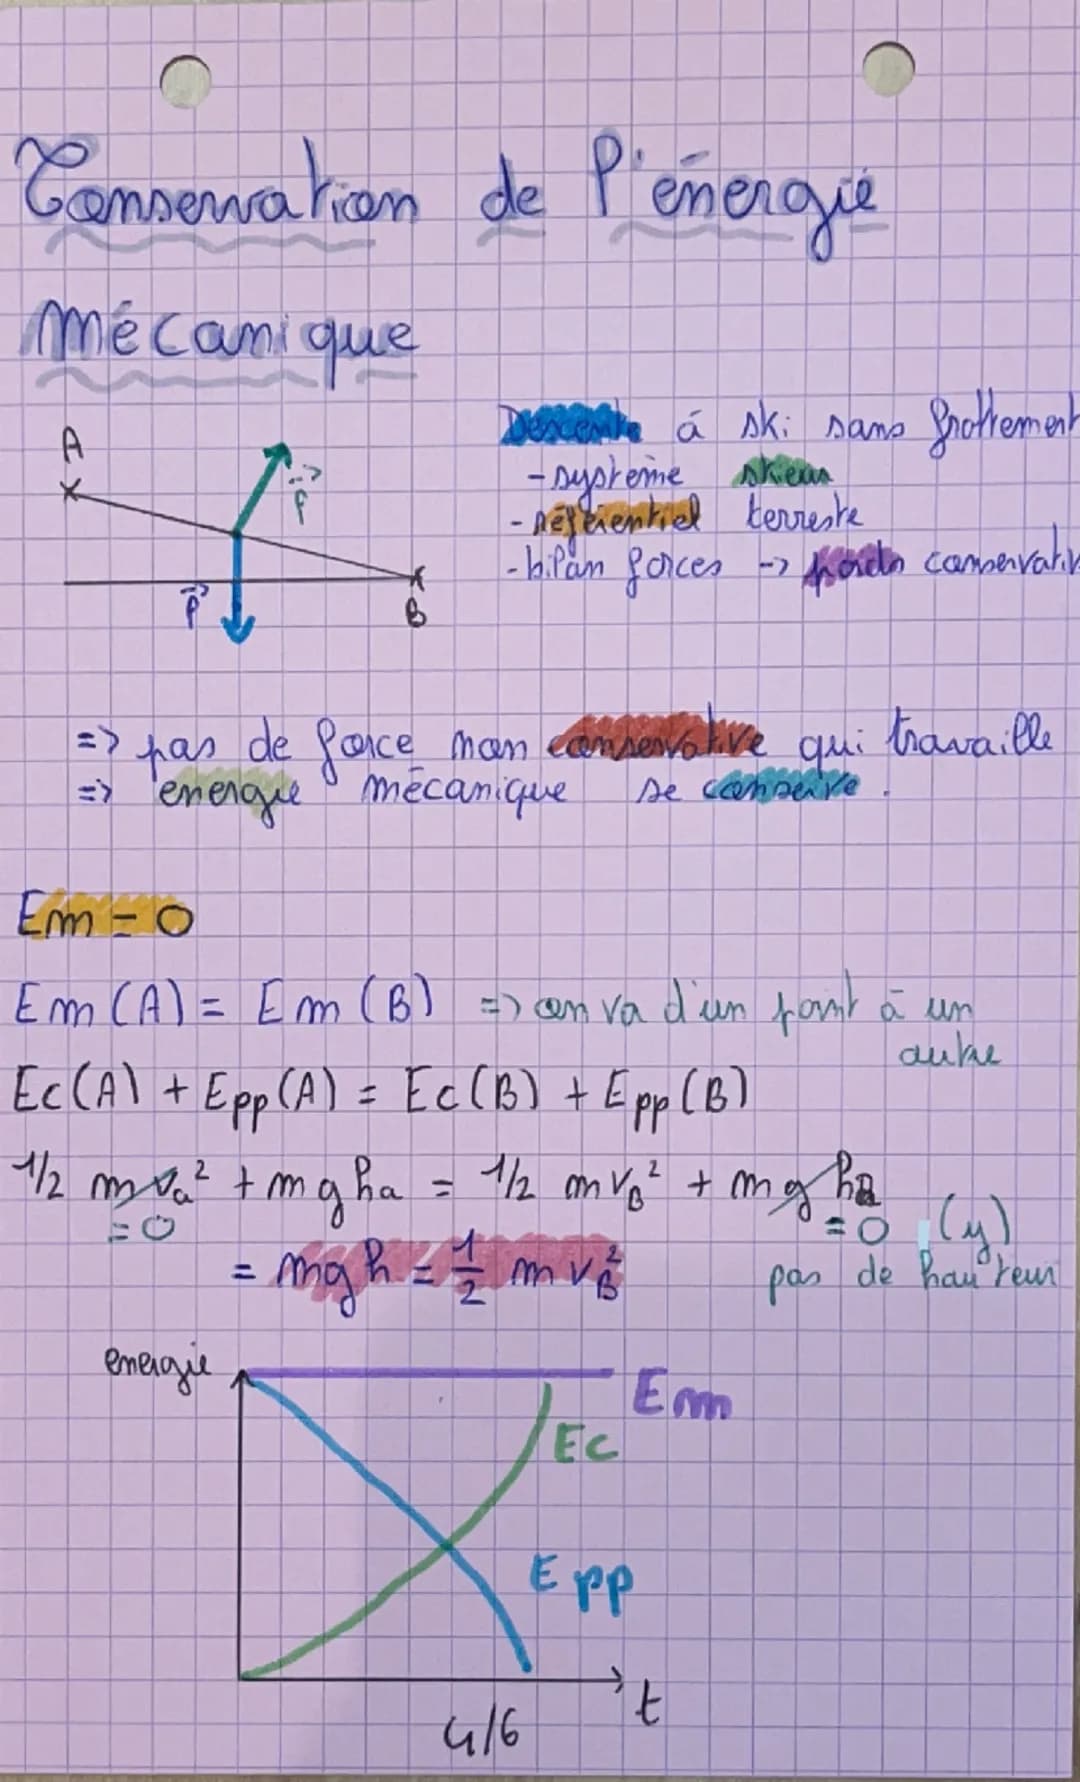 Conservation de l'énergie
mécanique
A
Descente à ski sans frottement
- système skieur
- référentiel terreste
- bilan forces -> poids conservativ
f
P
B
=> pas de force non conservative qui travaille
=> energie mécanique se conserve.
Em = 0
Em (A) = Em (B) => on va d'un point à un
autre
Ec(A) + Epp(A) = Ec(B) + Epp(B)
1/2 m va² + mg ha = 1/2 m vB² + mg hB
= 0
= 0 (y)
= mgh = 1/2 m vB²
pas de hauteur
energie
Em
Ec
Epp
t
4/6